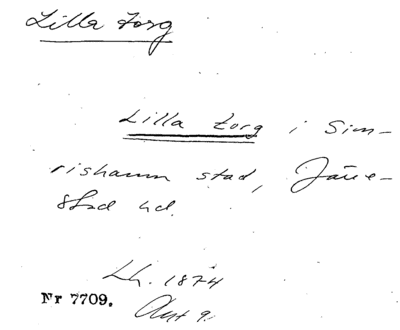 Lilla torg
Lilla torg i Sim-
rishamn stad, Järre-
stad hd.
Lh. 1874
Nr 7709.